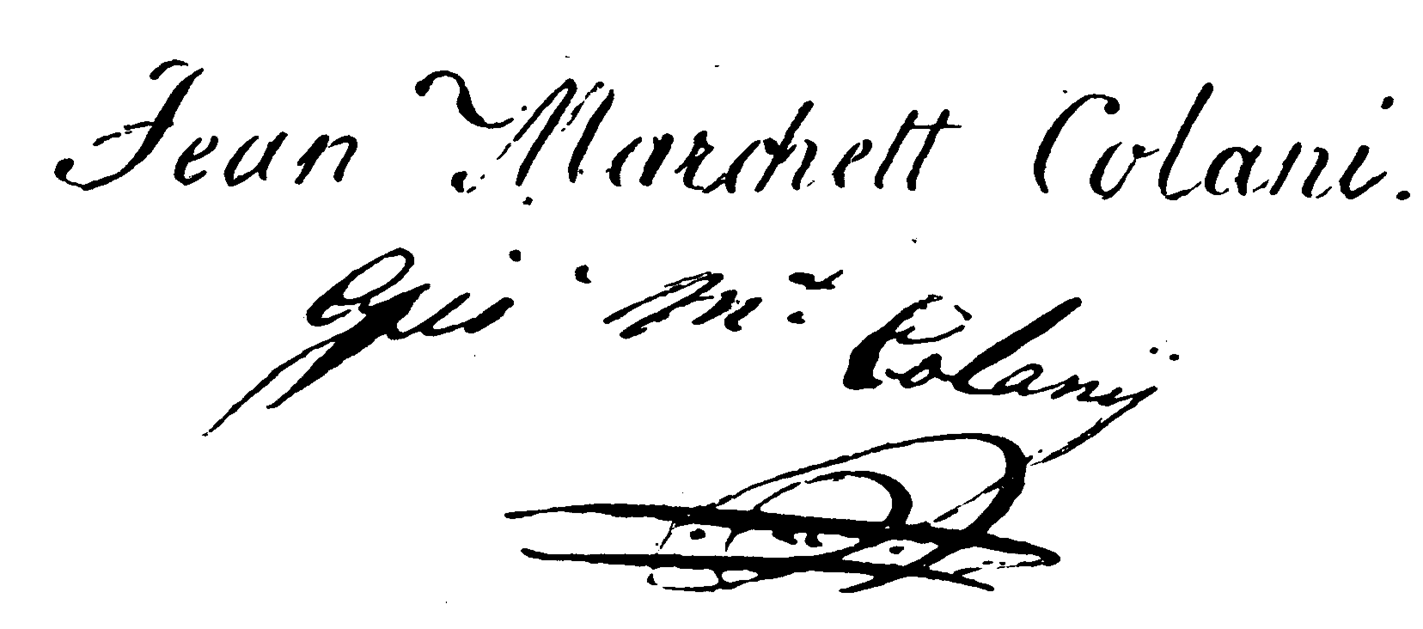 Jean Marchett Colani.
Mt Colanÿ